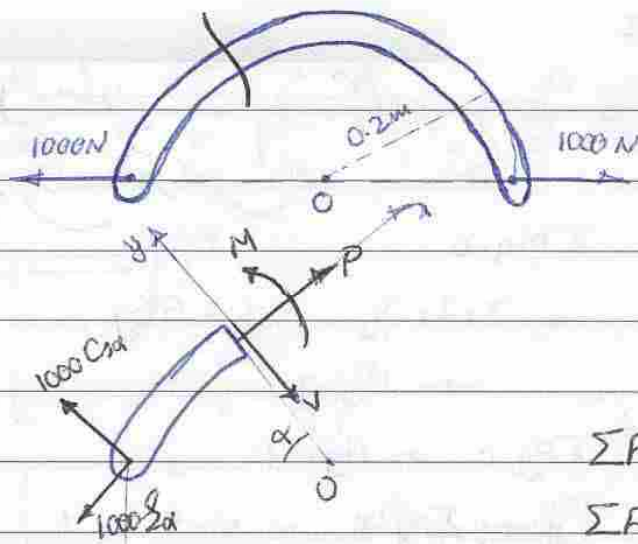 1000N
0.2m
1000 N
O
y
M
P
1000 Cosα
V
α
ΣF
1000 Sα
O
ΣF